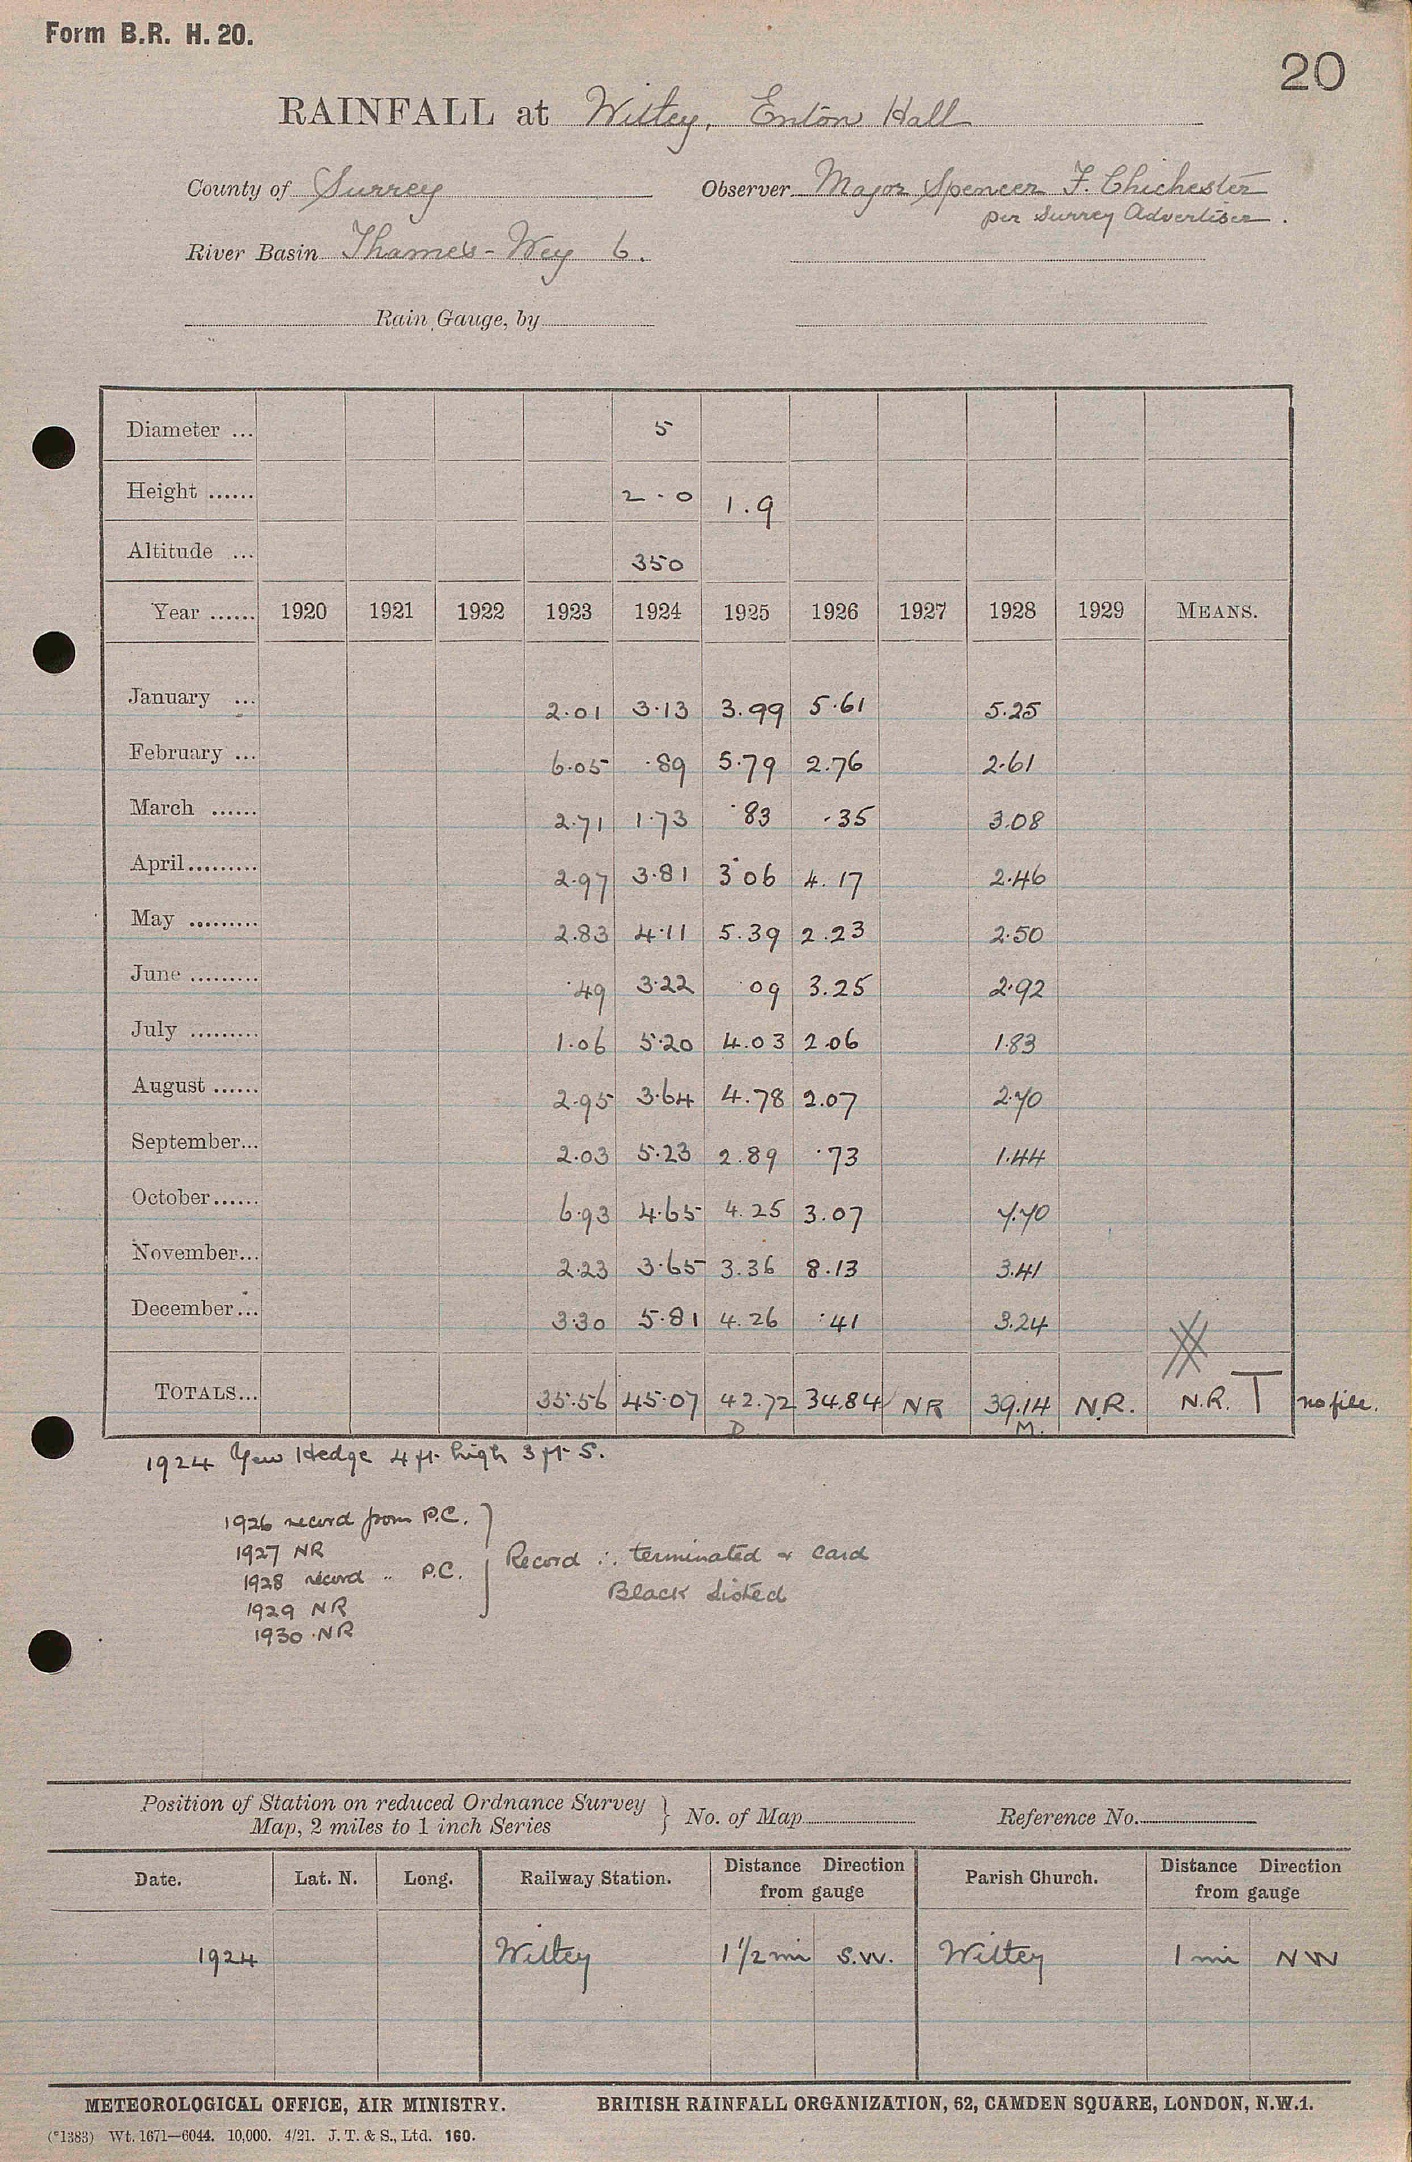 Form B.R. H. 20.
20
RAINFALL at Witley, Enton Hall
County of Surrey Observer Major Spencer F. Chichester
per Surrey Advertiser.
River Basin Thames - Wey 6.
Rain Gauge, by
Diameter ... 5
Height ...... 2 · 0 1 . 9
Altitude ... 350
Year ...... 1920 1921 1922 1923 1924 1925 1926 1927 1928 1929 MEANS.
January ... 2.01 3.13 3.99 5.61 5.25
February ... 6.05 .89 5.79 2.76 2.61
March ...... 2.71 1.73 .83 .35 3.08
April ......... 2.97 3.81 3.06 4.17 2.46
May ......... 2.83 4.11 5.39 2.23 2.50
June ......... .49 3.22 .09 3.25 2.92
July ......... 1.06 5.20 4.03 2.06 1.83
August ...... 2.95 3.64 4.78 2.07 2.70
September... 2.03 5.23 2.89 .73 1.44
October...... 6.93 4.65 4.25 3.07 7.70
November... 2.23 3.65 3.36 8.13 3.41
December... 3.30 5.81 4.26 .41 3.24
TOTALS... 35.56 45.07 42.72 34.84 NR 39.14 N.R. N.R. T no file.
D M.
1924 Yew Hedge 4 ft. high 3 ft. S.
1926 record from P.C.
1927 NR
1928 record " P.C.
1929 NR
1930 NR
Record ∴ terminated & Card
Black Listed
Position of Station on reduced Ordnance Survey
Map, 2 miles to 1 inch Series } No. of Map Reference No.
Date. Lat. N. Long. Railway Station. Distance Direction from gauge Parish Church. Distance Direction from gauge
1924 Witley 1 1/2 mi S.W. Witley 1 mi NW
METEOROLOGICAL OFFICE, AIR MINISTRY. BRITISH RAINFALL ORGANIZATION, 62, CAMDEN SQUARE, LONDON, N.W.1.
(*1383) Wt. 1671—6044. 10,000. 4/21. J. T. & S., Ltd. 160.